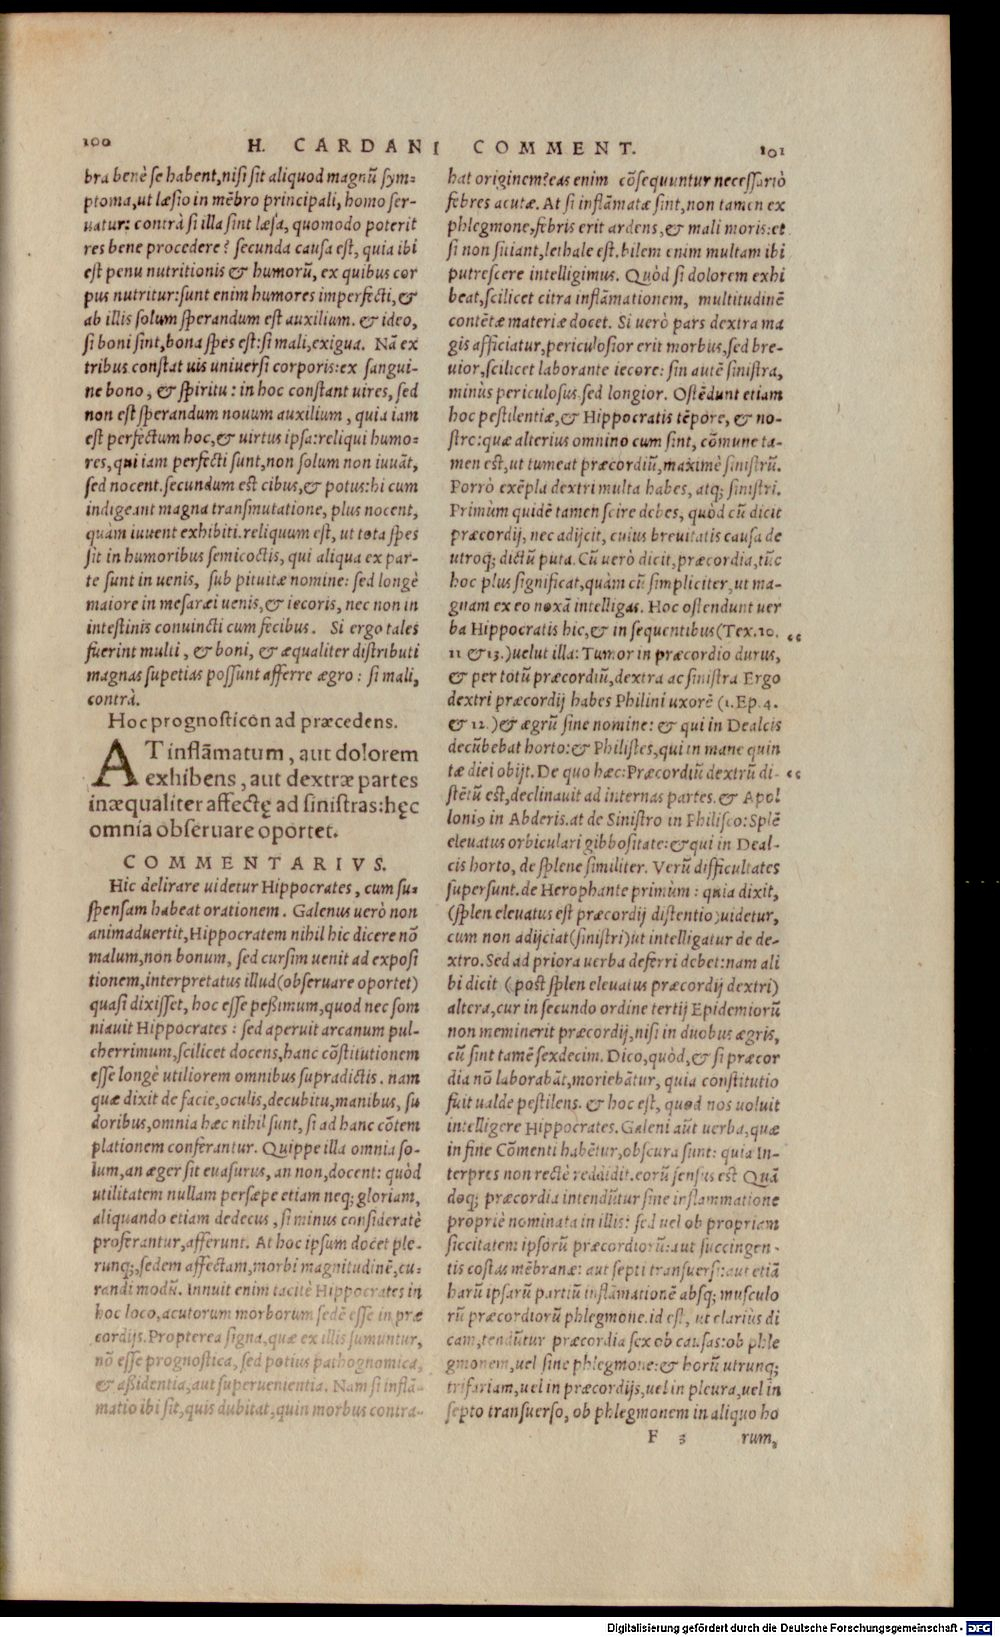 100 H. CARDANI COMMENT. 101
bra benè se habent,nisi sit aliquod magnū sym-
ptoma,ut læsio in mēbro principali, homo ser-
uatur: contrà si illa sint læsa, quomodo poterit
res bene procedere? secunda causa est, quia ibi
est penu nutritionis & humorū, ex quibus cor
pus nutritur:sunt enim humores imperfecti,&
ab illis solum sperandum est auxilium. & ideo,
si boni sint,bona spes est:si mali,exigua. Nā ex
tribus constat uis uniuersi corporis:ex sangui-
ne bono, & spiritu: in hoc constant uires, sed
non est sperandum nouum auxilium, quia iam
est perfectum hoc,& uirtus ipsa:reliqui humo-
res,qui iam perfecti sunt,non solum non iuuāt,
sed nocent.secundum est cibus,& potus:hi cum
indigeant magna transmutatione, plus nocent,
quàm iuuent exhibiti.reliquum est, ut tota spes
sit in humoribus semicoctis, qui aliqua ex par-
te sunt in uenis, sub pituitæ nomine: sed longè
maiore in mesaræi uenis,& iecoris, nec non in
intestinis conuincti cum fecibus. Si ergo tales
fuerint multi, & boni, & æqualiter distributi
magnas supetias possunt afferre ægro: si mali,
contrà.
Hoc prognosticon ad præcedens.
AT inflāmatum, aut dolorem
exhibens, aut dextræ partes
inæqualiter affectę ad sinistras:hęc
omnia obseruare oportet.
COMMENTARIVS.
Hic delirare uidetur Hippocrates, cum su-
spensam habeat orationem. Galenus uerò non
animaduertit,Hippocratem nihil hic dicere nō
malum,non bonum, sed cursim uenit ad exposi
tionem,interpretatus illud(obseruare oportet)
quasi dixisset, hoc esse peßimum,quod nec som
niauit Hippocrates: sed aperuit arcanum pul-
cherrimum,scilicet docens,hanc cōstitutionem
esse longè utiliorem omnibus supradictis. nam
quæ dixit de facie,oculis,decubitu,manibus, su
doribus,omnia hæc nihil sunt, si ad hanc cōtem
plationem conferantur. Quippe illa omnia so-
lum,an æger sit euasurus, an non,docent: quòd
utilitatem nullam persæpe etiam neq; gloriam,
aliquando etiam dedecus, si minus consideratè
proferantur,afferunt. At hoc ipsum docet ple-
runq;,sedem affectam,morbi magnitudinē,cu-
randi modū. Innuit enim tacitè Hippocrates in
hoc loco,acutorum morborum sedē esse in præ
cordijs.Propterea signa,quæ ex illis sumuntur,
nō esse prognostica, sed potius pathognomica,
& aßidentia,aut superuenientia. Nam si inflā-
matio ibi sit,quis dubitat,quin morbus contra-
hat originem?eas enim cōsequuntur necessariò
febres acutæ. At si inflāmatæ sint,non tamen ex
phlegmone,febris erit ardens,& mali moris:et
si non sitiant,lethale est.bilem enim multam ibi
putrescere intelligimus. Quòd si dolorem exhi
beat,scilicet citra inflāmationem, multitudinē
contētæ materiæ docet. Si uerò pars dextra ma
gis afficiatur,periculosior erit morbus,sed bre-
uior,scilicet laborante iecore: sin autē sinistra,
minùs periculosus.sed longior. Ostēdunt etiam
hoc pestilentiæ,& Hippocratis tēpore, & no-
stro:quæ alterius omnino cum sint, cōmune ta-
men est,ut tumeat præcordiū,maximè sinistrū.
Porrò exēpla dextri multa habes, atq; sinistri.
Primùm quidē tamen scire debes, quòd cū dicit
præcordij, nec adijcit, cuius breuitatis causa de
utroq; dictū puta. Cū uerò dicit,præcordia,tūc
hoc plus significat,quàm cū simpliciter,ut ma-
gnam ex eo noxā intelligas. Hoc ostendunt uer
ba Hippocratis hic,& in sequentibus(Tex.10. “
11 & 13.)uelut illa: Tumor in præcordio durus,
& per totū præcordiū,dextra ac sinistra Ergo
dextri præcordij habes Philini uxorē (1.Ep.4.
& 12.)& ægrū sine nomine: & qui in Dealcis
decūbebat horto:& Philistes,qui in mane quin
tæ diei obijt. De quo hæc:Præcordiū dextrū di- “
stētū est,declinauit ad internas partes. & Apol
loniꝰ in Abderis.at de Sinistro in Philisco:Splē
eleuatus orbiculari gibbositate:& qui in Deal-
cis horto, de splene similiter. Verū difficultates
supersunt.de Herophante primùm: quia dixit,
(splen eleuatus est præcordij distentio)uidetur,
cum non adijciat(sinistri)ut intelligatur de de-
xtro. Sed ad priora uerba deferri debet:nam ali
bi dicit (post splen eleuatus præcordij dextri)
altera,cur in secundo ordine tertij Epidemiorū
non meminerit præcordij,nisi in duobus ægris,
cū sint tamē sexdecim. Dico,quòd,& si præcor
dia nō laborabāt,moriebātur, quia constitutio
fuit ualde pestilens. & hoc est, quod nos uoluit
intelligere Hippocrates. Galeni aūt uerba,quæ
in fine Cōmenti habētur,obscura sunt: quia In-
terpres non rectè reddidit.eorū sensus est Quā
doq; præcordia intendūtur sine inflammatione
propriè nominata in illis: sed uel ob propriam
siccitatem ipsorū præcordiorū:aut succingen-
tis costas mēbranæ: aut septi transuersi:aut etiā
harū ipsarū partiū inflāmationē absq; musculo
rū præcordiorū phlegmone.id est, ut clariùs di
cam,tendūtur præcordia sex ob causas:ob phle
gmonem,uel sine phlegmone:& horū utrunq;
trifariam,uel in præcordijs,uel in pleura,uel in
septo transuerso, ob phlegmonem in aliquo ho
F 3 rum,
Digitalisierung gefördert durch die Deutsche Forschungsgemeinschaft - DFG